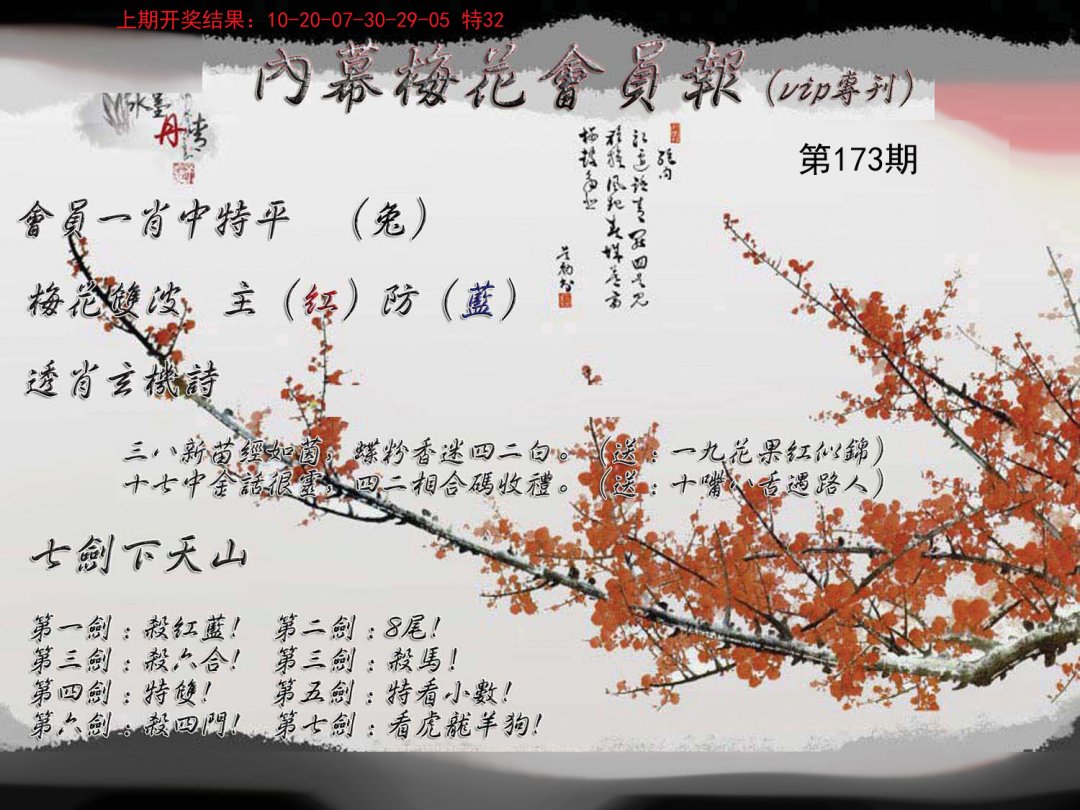 上期开奖结果：10-20-07-30-29-05 特32
內幕梅花會員報（vip專刊）
水墨丹青
第173期
會員一肖中特平 （兔）
梅花雙波 主（红）防（藍）
透肖玄機詩
三八新苗經如茵，蝶粉香迷四二白。（送：一九花果紅似錦）
十七中金話很靈，四二相合碼收禮。（送：十嘴八舌遇路人）
七劍下天山
第一劍：殺紅藍！ 第二劍：8尾！
第三劍：殺六合！ 第三劍：殺馬！
第四劍：特雙！ 第五劍：特看小數！
第六劍：殺四門！ 第七劍：看虎龍羊狗！